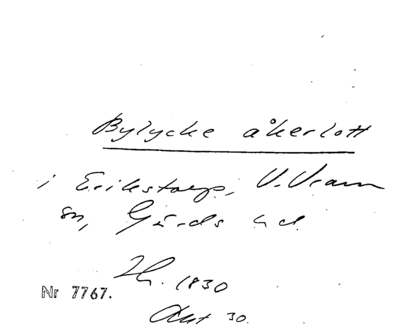 Bylycke åkerlott
i Erikstorp, V. Vram
sn, Gärds hd.
1830
Nr 7767.
Akt 30.